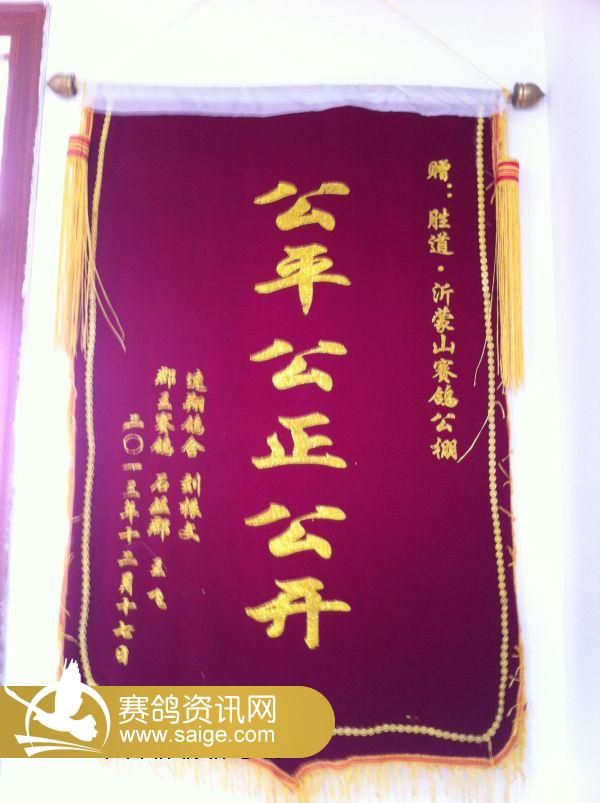 赠：胜道·沂蒙山赛鸽公棚
公平公正公开
速翔鸽舍 刘振友
郡王赛鸽 石益郡 王飞
二〇一三年十二月十七日
赛鸽资讯网
www.saige.com